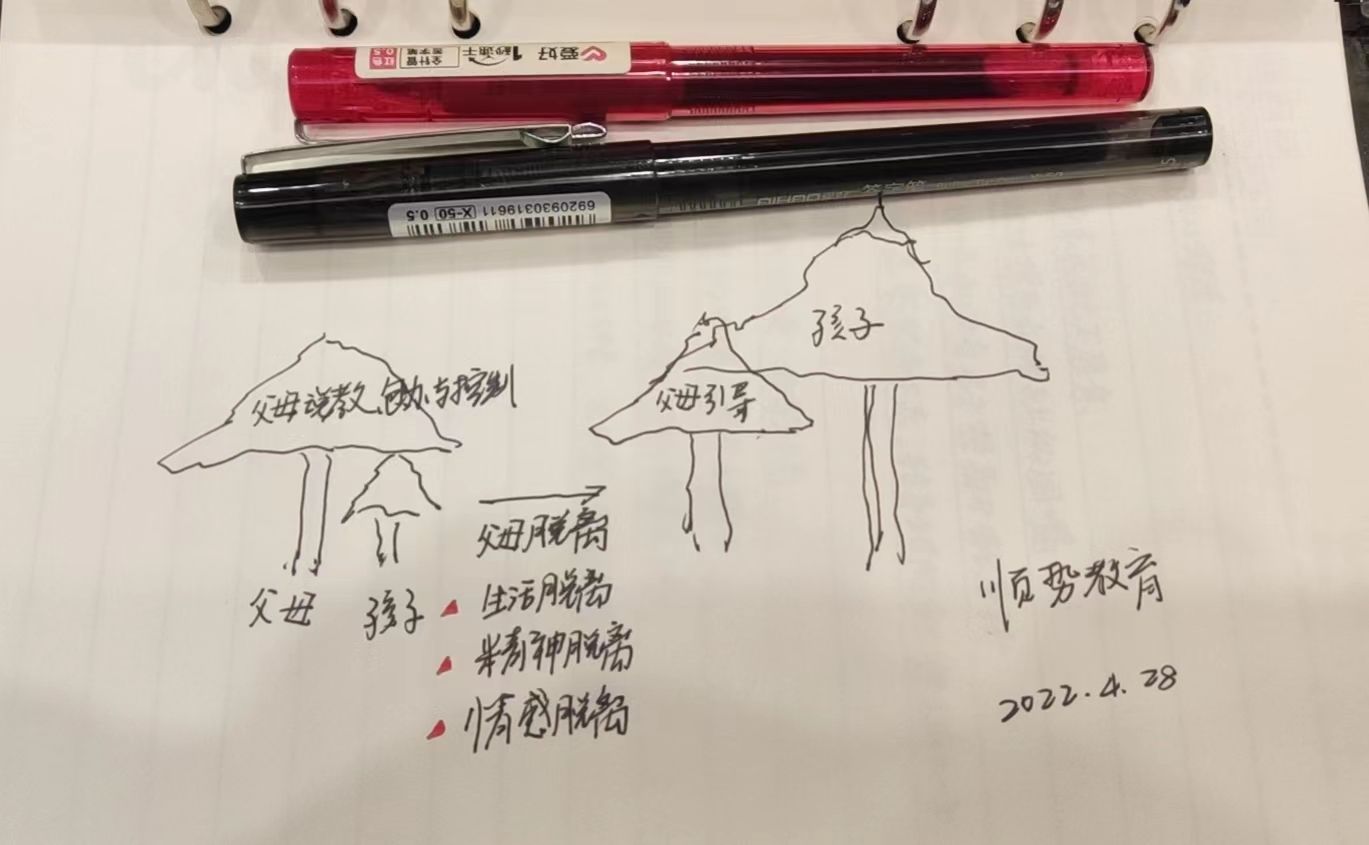 爱好 1秒速干 全针管 签字笔 红色 0.5
6920930319611 X-50 0.5
签字笔
孩子
父母说教、包办与控制
父母引导
父母脱离
父母 孩子
生活脱离
精神脱离
情感脱离
顺势教育
2022.4.28